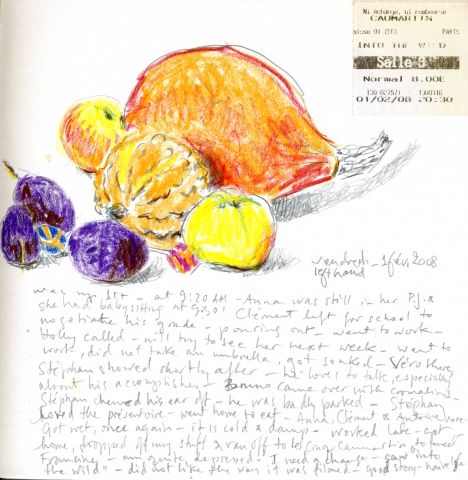 Ni échange, ni remboursé
CAUMARTIN
PARIS
INTO THE WILD
Salle 3
Normal 8.00E
01/02/08 20:30
vendredi - 1 fév. 2008
left hand
way my 1st - at 9:20 AM - Anna was still in her P.J. &
she had babysitting at 9:30! Clément left for school to
negotiate his grade - pouring out - went to work -
Holly called - will try to see her next week - went to
work, did not take an umbrella, got soaked - Véro there
Stéphan showed shortly after - he loves to talk, especially
about his accomplish - Bruno came over with
Stéphan chewed his ear off - he was badly parked - Stéphan
the - went home to eat - Anna, Clément &
Got wet, once again - it is cold & damp - worked late - got
home, dropped off my stuff & ran off to les Cinq Caumartin to meet
Francine - am quite depressed - I need a change - saw "into
the wild" - did not like the way it was filmed - good story -